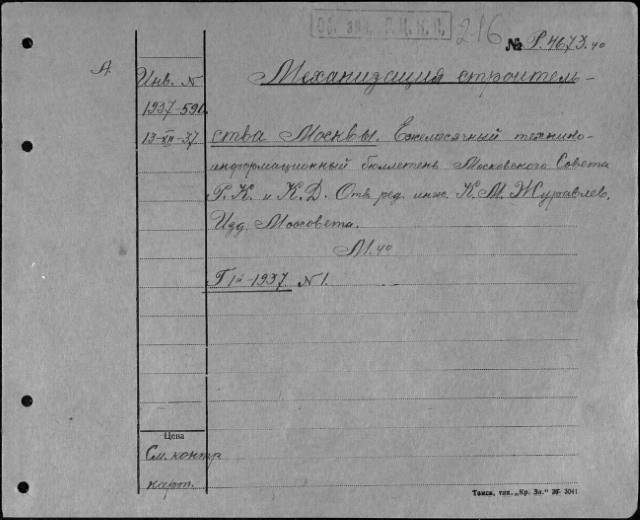 Об. экз. Л.Ц.К.П. 216
№ Р.4673.40
А
Инв. N
1937-590
13-XII-37
Механизация строитель-
ства Москвы. Ежемесячный технико-
информационный бюллетень Московского Совета
Р.К. и К.Д. Отв. ред. инж. К.М. Журавлев.
Изд. Моссовета.
М. 40
Г 1й-1937 N1.
Цена
См. контр
карт.
Томск, тип. „Кр. Зн." № 3041